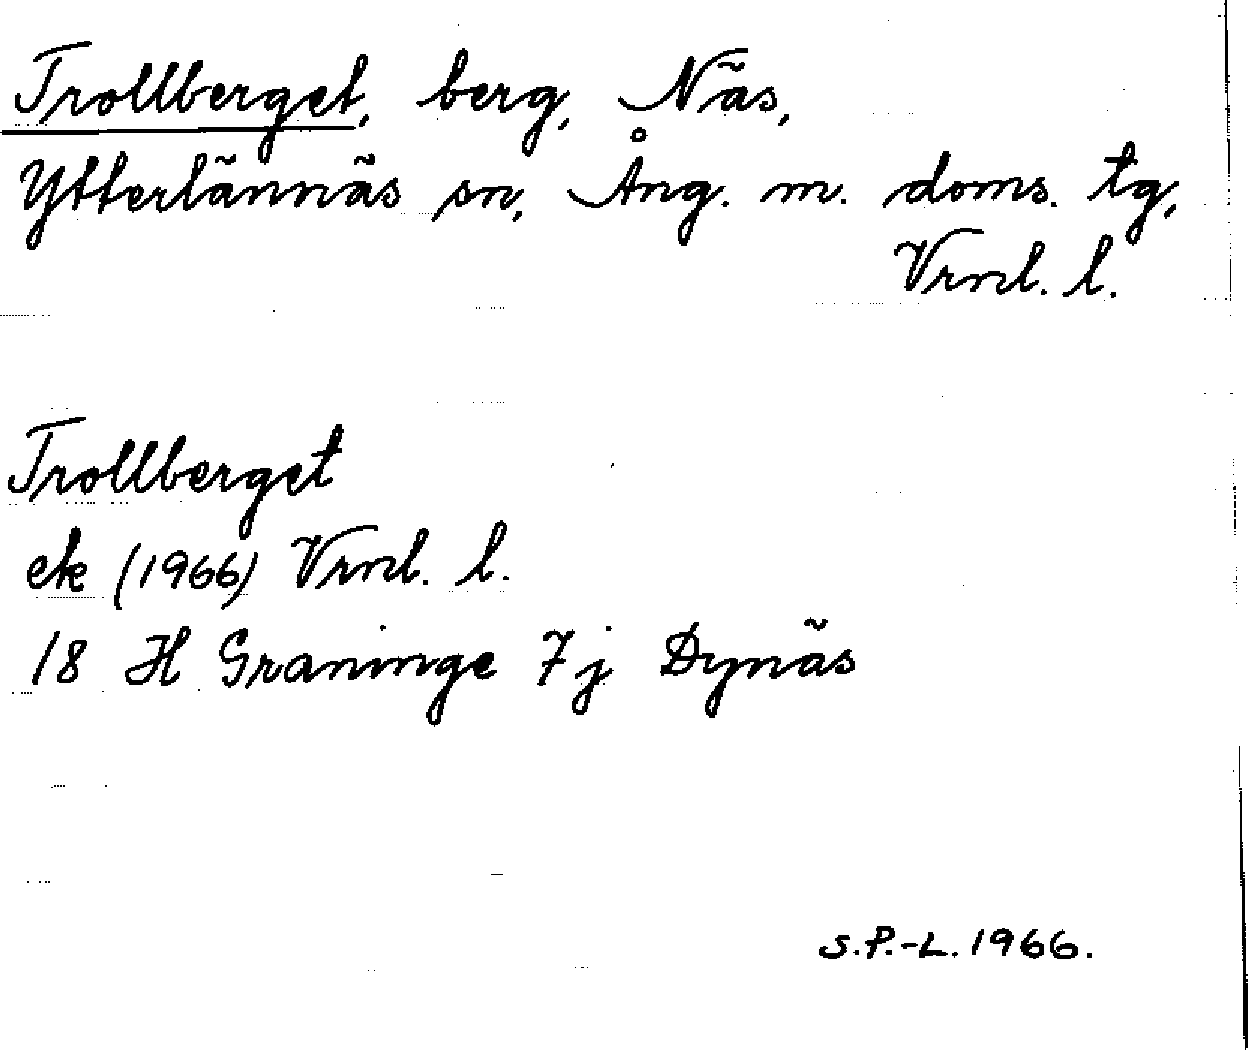 Trollberget, berg, Näs,
Ytterlännäs sn, Ång. m. doms. tg,
Vrnl. l.
Trollberget
ek (1966) Vrnl. l.
18 H Graninge 7 j Dynäs
S.P.-L. 1966.